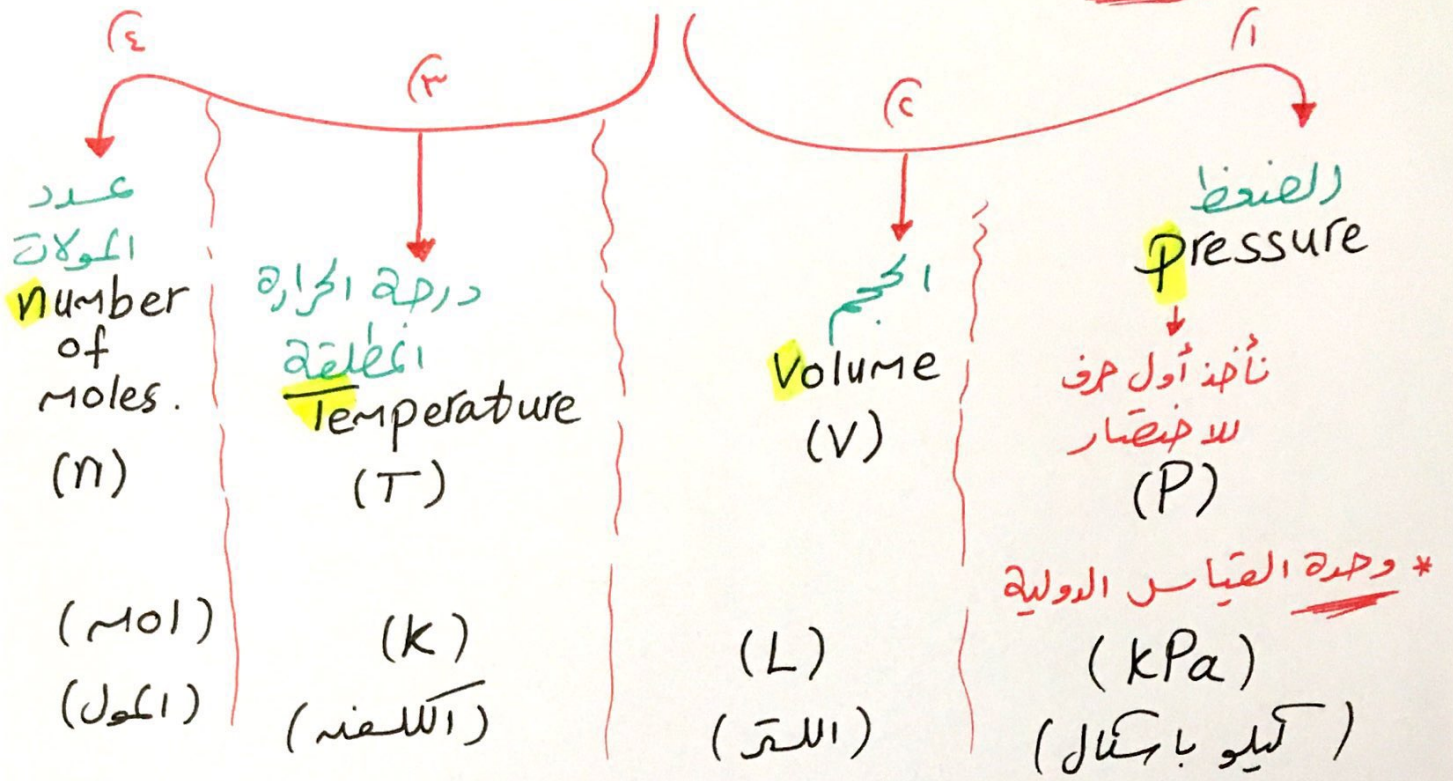 (١
الضغط
Pressure
نأخذ أول حرف
للاختصار
(P)
* وحدة القياس الدولية
(kPa)
(كيلو باسكال)
(٢
الحجم
Volume
(V)
(L)
(اللتر)
(٣
درجة الحرارة
المطلقة
Temperature
(T)
(K)
(الكلفن)
(٤
عدد
المولات
number
of
moles.
(n)
(mol)
(المول)